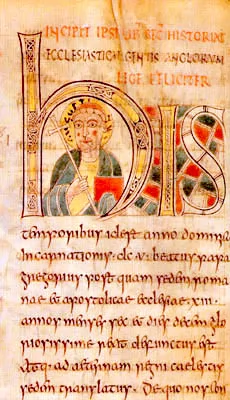 INCIPIT IPSIUS HISTORIAE
ECCLESIASTICAE GENTIS ANGLORUM
FELICITER
his
temporibus id est anno domini
incarnationis dc v beatus papa
gregorius post quam sedem roma
nae et apostolicae ecclesiae xiii
annos menses sex et dies decem glo
riosissime rexit defunctus est
atq: ad aeternam regni caelestis
sedem translatus De quo nos con